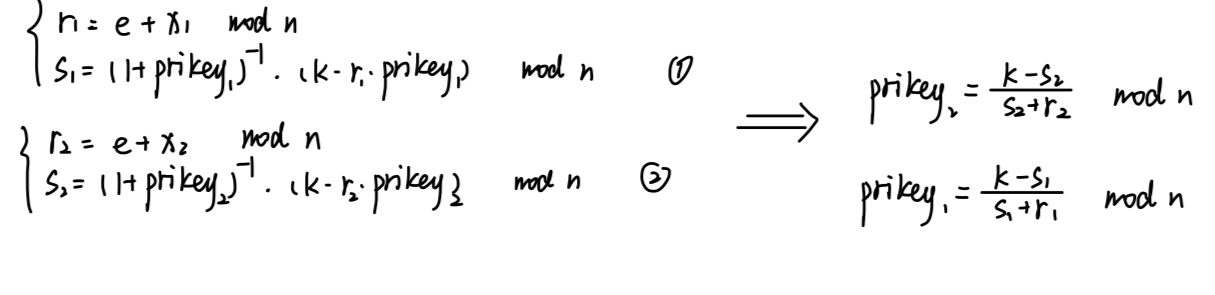 r₁ = e + x₁ mod n
S₁ = (1+prikey₁)⁻¹ · (k - r₁·prikey₁) mod n ①
r₂ = e + x₂ mod n
S₂ = (1+prikey₂)⁻¹ · (k - r₂·prikey₂) mod n ②
⟹
prikey₂ = (k-S₂)/(S₂+r₂) mod n
prikey₁ = (k-S₁)/(S₁+r₁) mod n